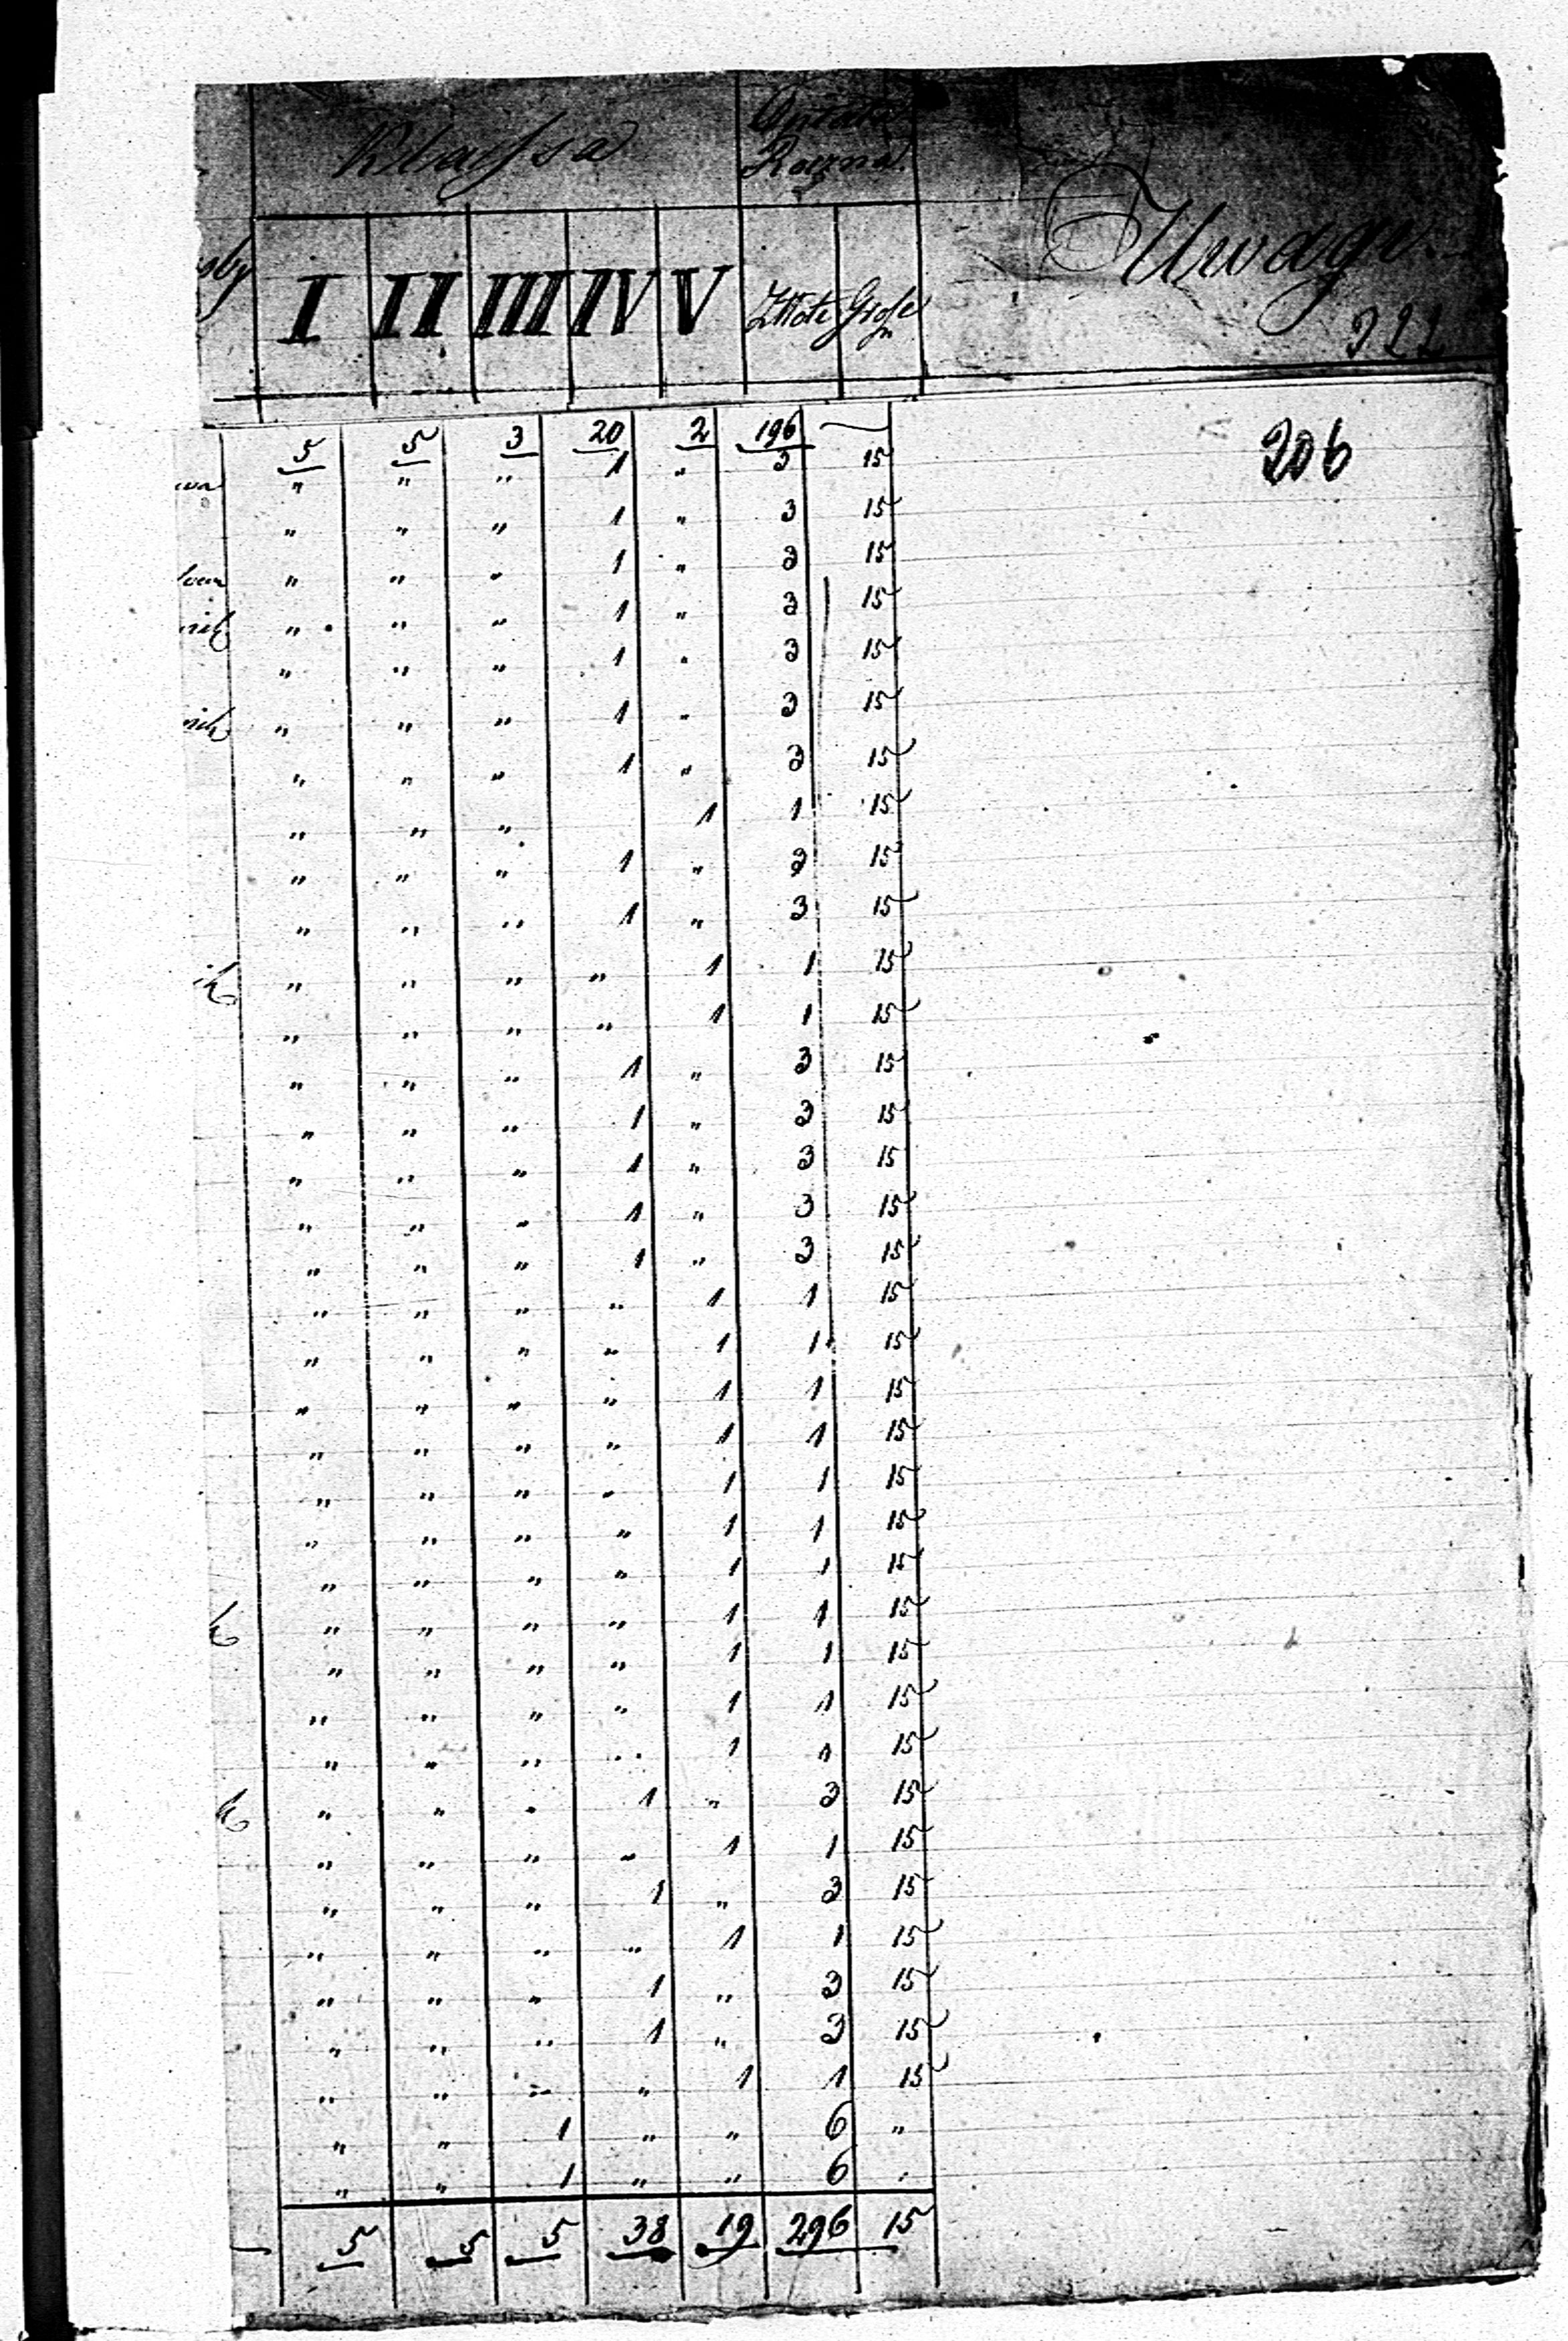 Klassa
Roczna
Uwagi.
I II III IV V Złote Grosze
322
5 5 3 20 2 196 —
206
" " " 1 " 3 15
" " " 1 " 3 15
" " " 1 " 3 15
" " " 1 " 3 15
" " " 1 " 3 15
" " " 1 " 3 15
" " " 1 " 3 15
" " " 1 1 15
" " " 1 " 3 15
" " " 1 " 3 15
" " " " 1 1 15
" " " " 1 1 15
" " " 1 " 3 15
" " " 1 " 3 15
" " " 1 " 3 15
" " " 1 " 3 15
" " " 1 " 3 15
" " " " 1 1 15
" " " " 1 1 15
" " " " 1 1 15
" " " " 1 1 15
" " " " 1 1 15
" " " " 1 1 15
" " " " 1 1 15
" " " " 1 1 15
" " " " 1 1 15
" " " " 1 1 15
" " " " 1 1 15
" " " 1 " 3 15
" " " " 1 1 15
" " " 1 " 3 15
" " " " 1 1 15
" " " 1 " 3 15
" " " 1 " 3 15
" " " " 1 1 15
" " 1 " " 6 "
" " 1 " " 6 "
5 5 5 38 19 296 15